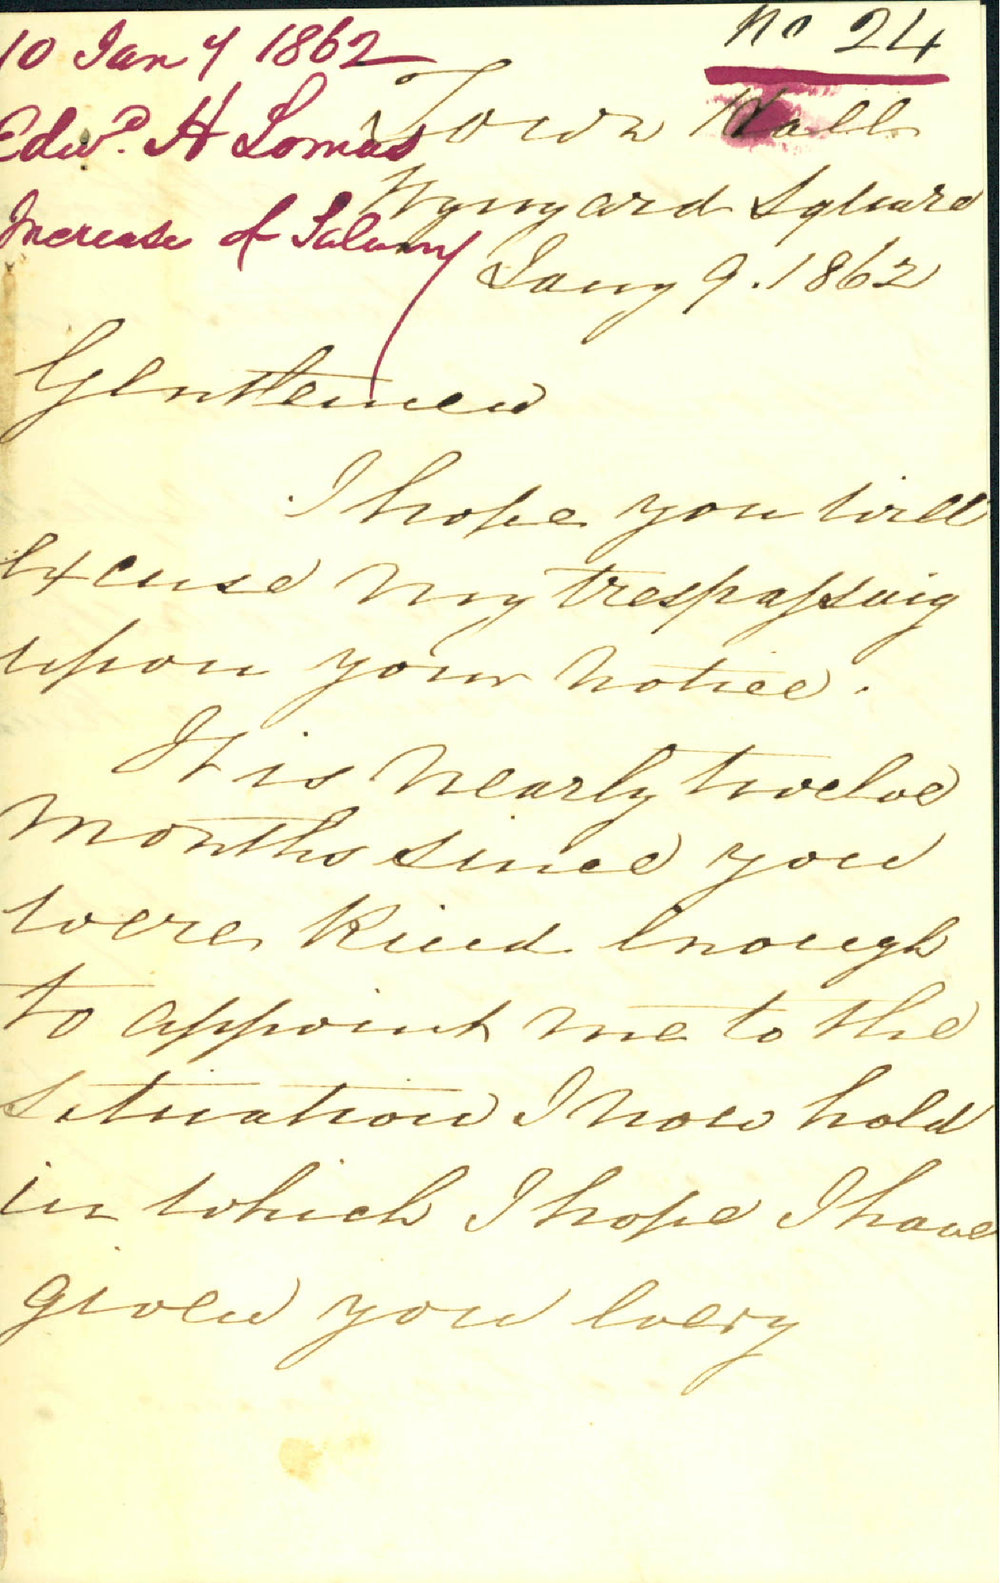 No 24
10 Jany 1862
Edwd. H Lomas
Increase of Salary
Town Hall
Wynyard Square
Jany 9. 1862
Gentlemen
I hope you will
excuse my trespassing
upon your notice.
It is nearly twelve
months since you
were kind enough
to appoint me to the
situation I now hold
in which I hope I have
given you every